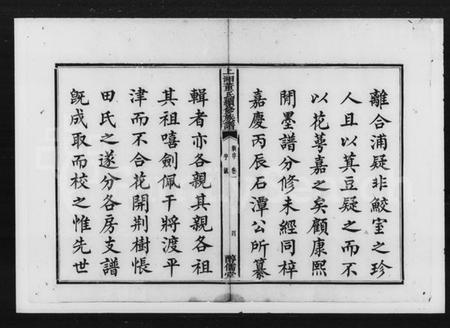 離合浦疑非鮫室之珍
人且以箕豆疑之而不
以花萼嘉之矣顧康熙
閒墨譜分修未經同梓
嘉慶丙辰石潭公所纂
上湘董氏續修族譜
新序 卷一
序錄
四
醇儒堂
輯者亦各親其親各祖
其祖嘻劍佩干將渡平
津而不合花開荆樹悵
田氏之遂分各房支譜
旣成取而校之惟先世